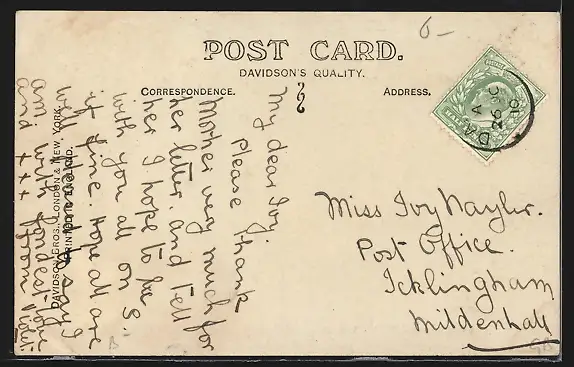 6-
POST CARD.
DAVIDSON'S QUALITY.
CORRESPONDENCE.
ADDRESS.
My dear Ivy.
Please thank
Mother very much for
her letter and tell
her I hope to be
with you all on S.
if fine. Hope all are
well and
am. with fondest love
and + + + from
DAVIDSON BROS., LONDON & NEW YORK.
PRINTED IN ENGLAND.
Miss Ivy Naylor.
Post Office.
Icklingham
Mildenhall